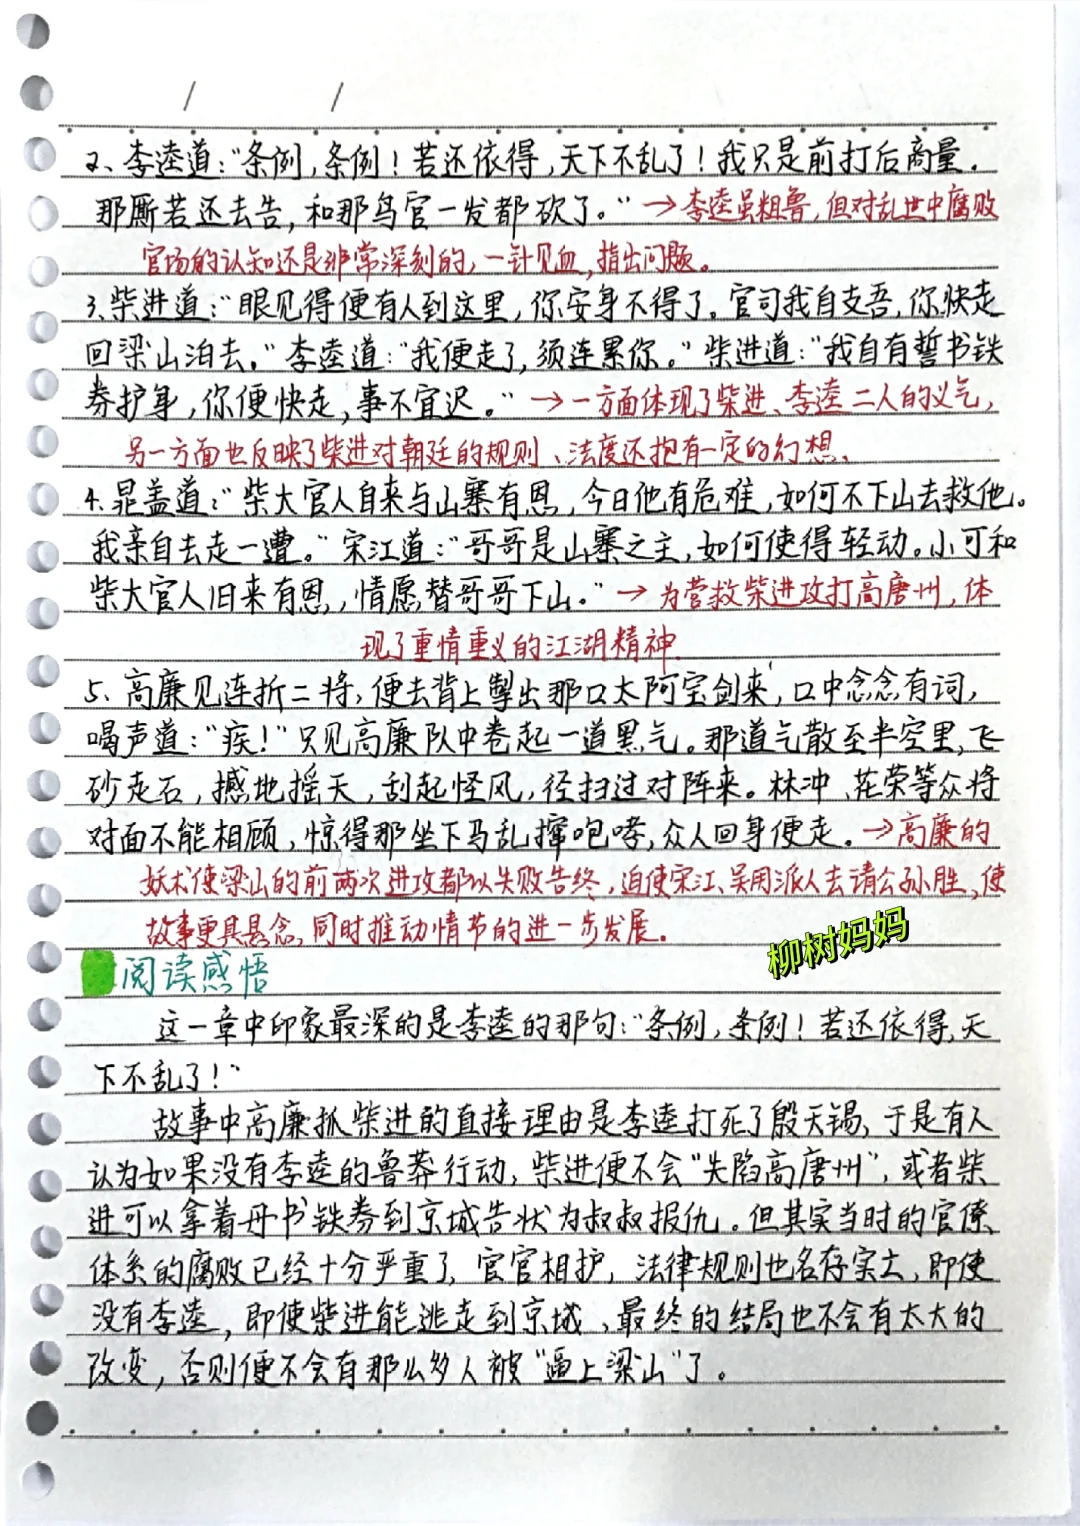 2、李逵道："条例,条例!若还依得,天下不乱了!我只是前打后商量.
那厮若还去告,和那鸟官一发都砍了。" →李逵虽粗鲁,但对乱世中腐败
官场的认知还是非常深刻的,一针见血,指出问题。
3、柴进道："眼见得便有人到这里,你安身不得了。官司我自支吾,你快走
回梁山泊去。"李逵道:"我便走了,须连累你。"柴进道:"我自有誓书铁
券护身,你便快走,事不宜迟。"→一方面体现了柴进、李逵二人的义气,
另一方面也反映了柴进对朝廷的规则、法度还抱有一定的幻想、
4、晁盖道："柴大官人自来与山寨有恩,今日他有危难,如何不下山去救他。
我亲自去走一遭。"宋江道:"哥哥是山寨之主,如何使得轻动。小可和
柴大官人旧来有恩,情愿替哥哥下山。"→为营救柴进攻打高唐州,体
现了重情重义的江湖精神
5、高廉见连折二将,便去背上掣出那口太阿宝剑来,口中念念有词,
喝声道:"疾!"只见高廉队中卷起一道黑气。那道气散至半空里,飞
砂走石,撼地摇天,刮起怪风,径扫过对阵来。林冲、花荣等众将
对面不能相顾,惊得那坐下马乱撺咆哮,众人回身便走。→高廉的
妖术使梁山的前两次进攻都以失败告终,迫使宋江、吴用派人去请公孙胜,使
故事更具悬念,同时推动情节的进一步发展。
柳树妈妈
阅读感悟
这一章中印象最深的是李逵的那句:"条例,条例!若还依得,天
下不乱了!"
故事中高廉抓柴进的直接理由是李逵打死了殷天锡,于是有人
认为如果没有李逵的鲁莽行动,柴进便不会"失陷高唐州",或者柴
进可以拿着丹书铁券到京城告状为叔叔报仇。但其实当时的官僚
体系的腐败已经十分严重了,官官相护,法律规则也名存实亡,即使
没有李逵,即使柴进能逃走到京城、最终的结局也不会有太大的
改变,否则便不会有那么多人被"逼上梁山"了。